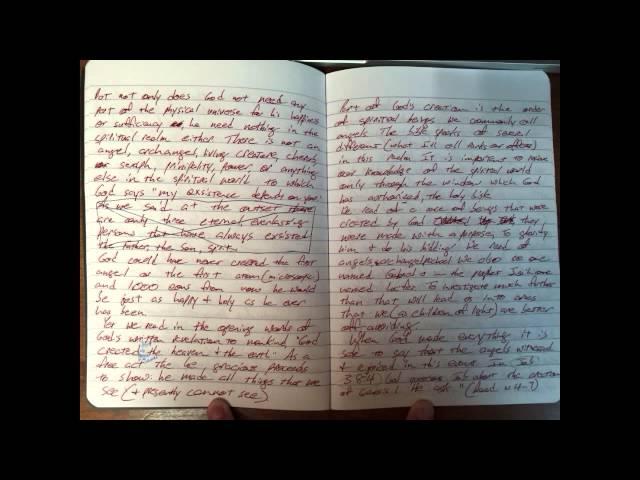 But not only does God not need any
part of the physical universe for his happiness
or sufficiency he need nothing in the
spiritual realm either. There is not an
angel, archangel, living creature, cherub,
or seraph, principality, power or anything
else in the spiritual world to which
God says "my existence depends on you."
As we said at the outset there
are only three eternal, everlasting
persons that have always existed
the father, the son, spirit
God could have never created the first
angel or the first atom (microscopic)
and 1000 eons from now he would
be just as happy + holy as he ever
has been.
Yet we read in the opening words of
God's written revelation to mankind "God
created the heaven + the earth." As a
free act the gracious proceeds
to show: he made all things that we
see (+ presently cannot see)
Part of God's creation is the order
of spiritual beings we commonly call
angels. The bible speaks of several
different (what I'll call ranks or offices)
in this realm It is important to
our knowledge of the spiritual world
only through the window which God
has authorized, the holy bible
We read of a once and beings that were
created by God they
were made with a purpose, to glorify
him + do his bidding! We read of
angels, archangel, Michael We also one
named Gabriel + the prophet Isaiah, one
named Lucifer. To investigate much further
than that will lead us into areas
that we (as children of light) are better
off avoiding.
When God made everything it is
safe to say that the angels witnessed
+ rejoiced in this event. In Job
38:4 God Job about the creation
of Genesis 1 He ask " (Read vv 4-7)